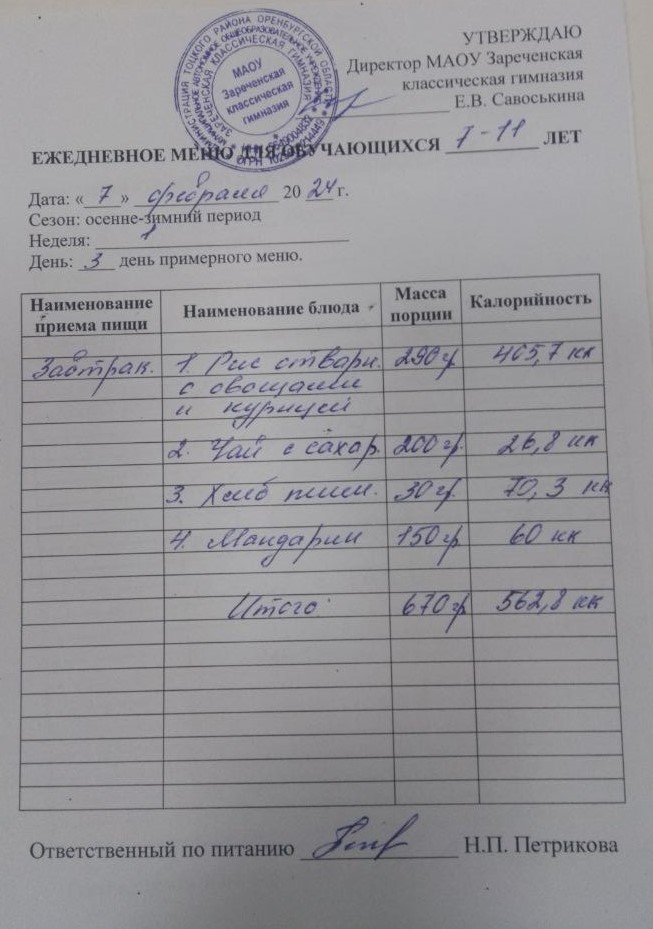 УТВЕРЖДАЮ
Директор МАОУ Зареченская
классическая гимназия
Е.В. Савоськина
МАОУ
Зареченская
классическая
гимназия
ЕЖЕДНЕВНОЕ МЕНЮ ДЛЯ ОБУЧАЮЩИХСЯ 7-11 ЛЕТ
Дата: «7» февраля 2024 г.
Сезон: осенне-зимний период
Неделя: 1
День: 3 день примерного меню.
Наименование приема пищи Наименование блюда Масса порции Калорийность
Завтрак. 1. Рис отварн. 290 гр 405,7 кк
с овощами
и курицей
2. Чай с сахар. 200 гр 26,8 кк
3. Хлеб пшен. 30 гр. 70,3 кк
4. Мандарин 150 гр 60 кк
Итого 670 гр 562,8 кк
Ответственный по питанию Н.П. Петрикова